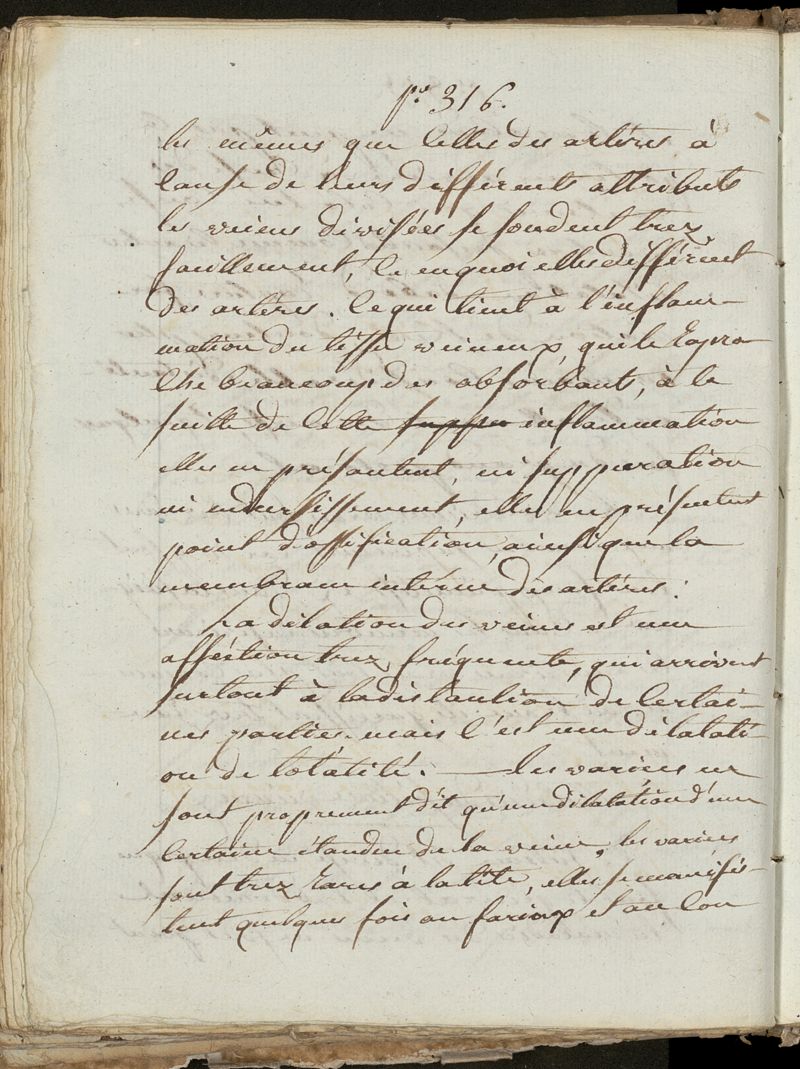 po 316.
les mêmes que celles des artères à
cause de leurs différents attributs
les veines divisées se soudent trez
facillement, ce en quoi elles différent
des artères. ce qui tient à l'inflam-
mation du tissu veineux, qui le rapro
che beaucoup des absorbants, à la
suitte de cette inflammation
elles ne présantent, ni suppuration
ni endurcissement, elles ne présentent
point d'ossification, ainsi que la
membrane interne des artères:
La dilation des veines est une
afféction trez fréquente, qui arrivent
surtout à la distantion de certai-
nes parties. mais c'est une dilatati-
on de totalité. — les varices ne
sont proprement dit qu'une dilatation d'une
certaine étandue de la veine, les varices
sont trez rares à la tête, elles se manifés-
tent quelques fois au farinx et au cou